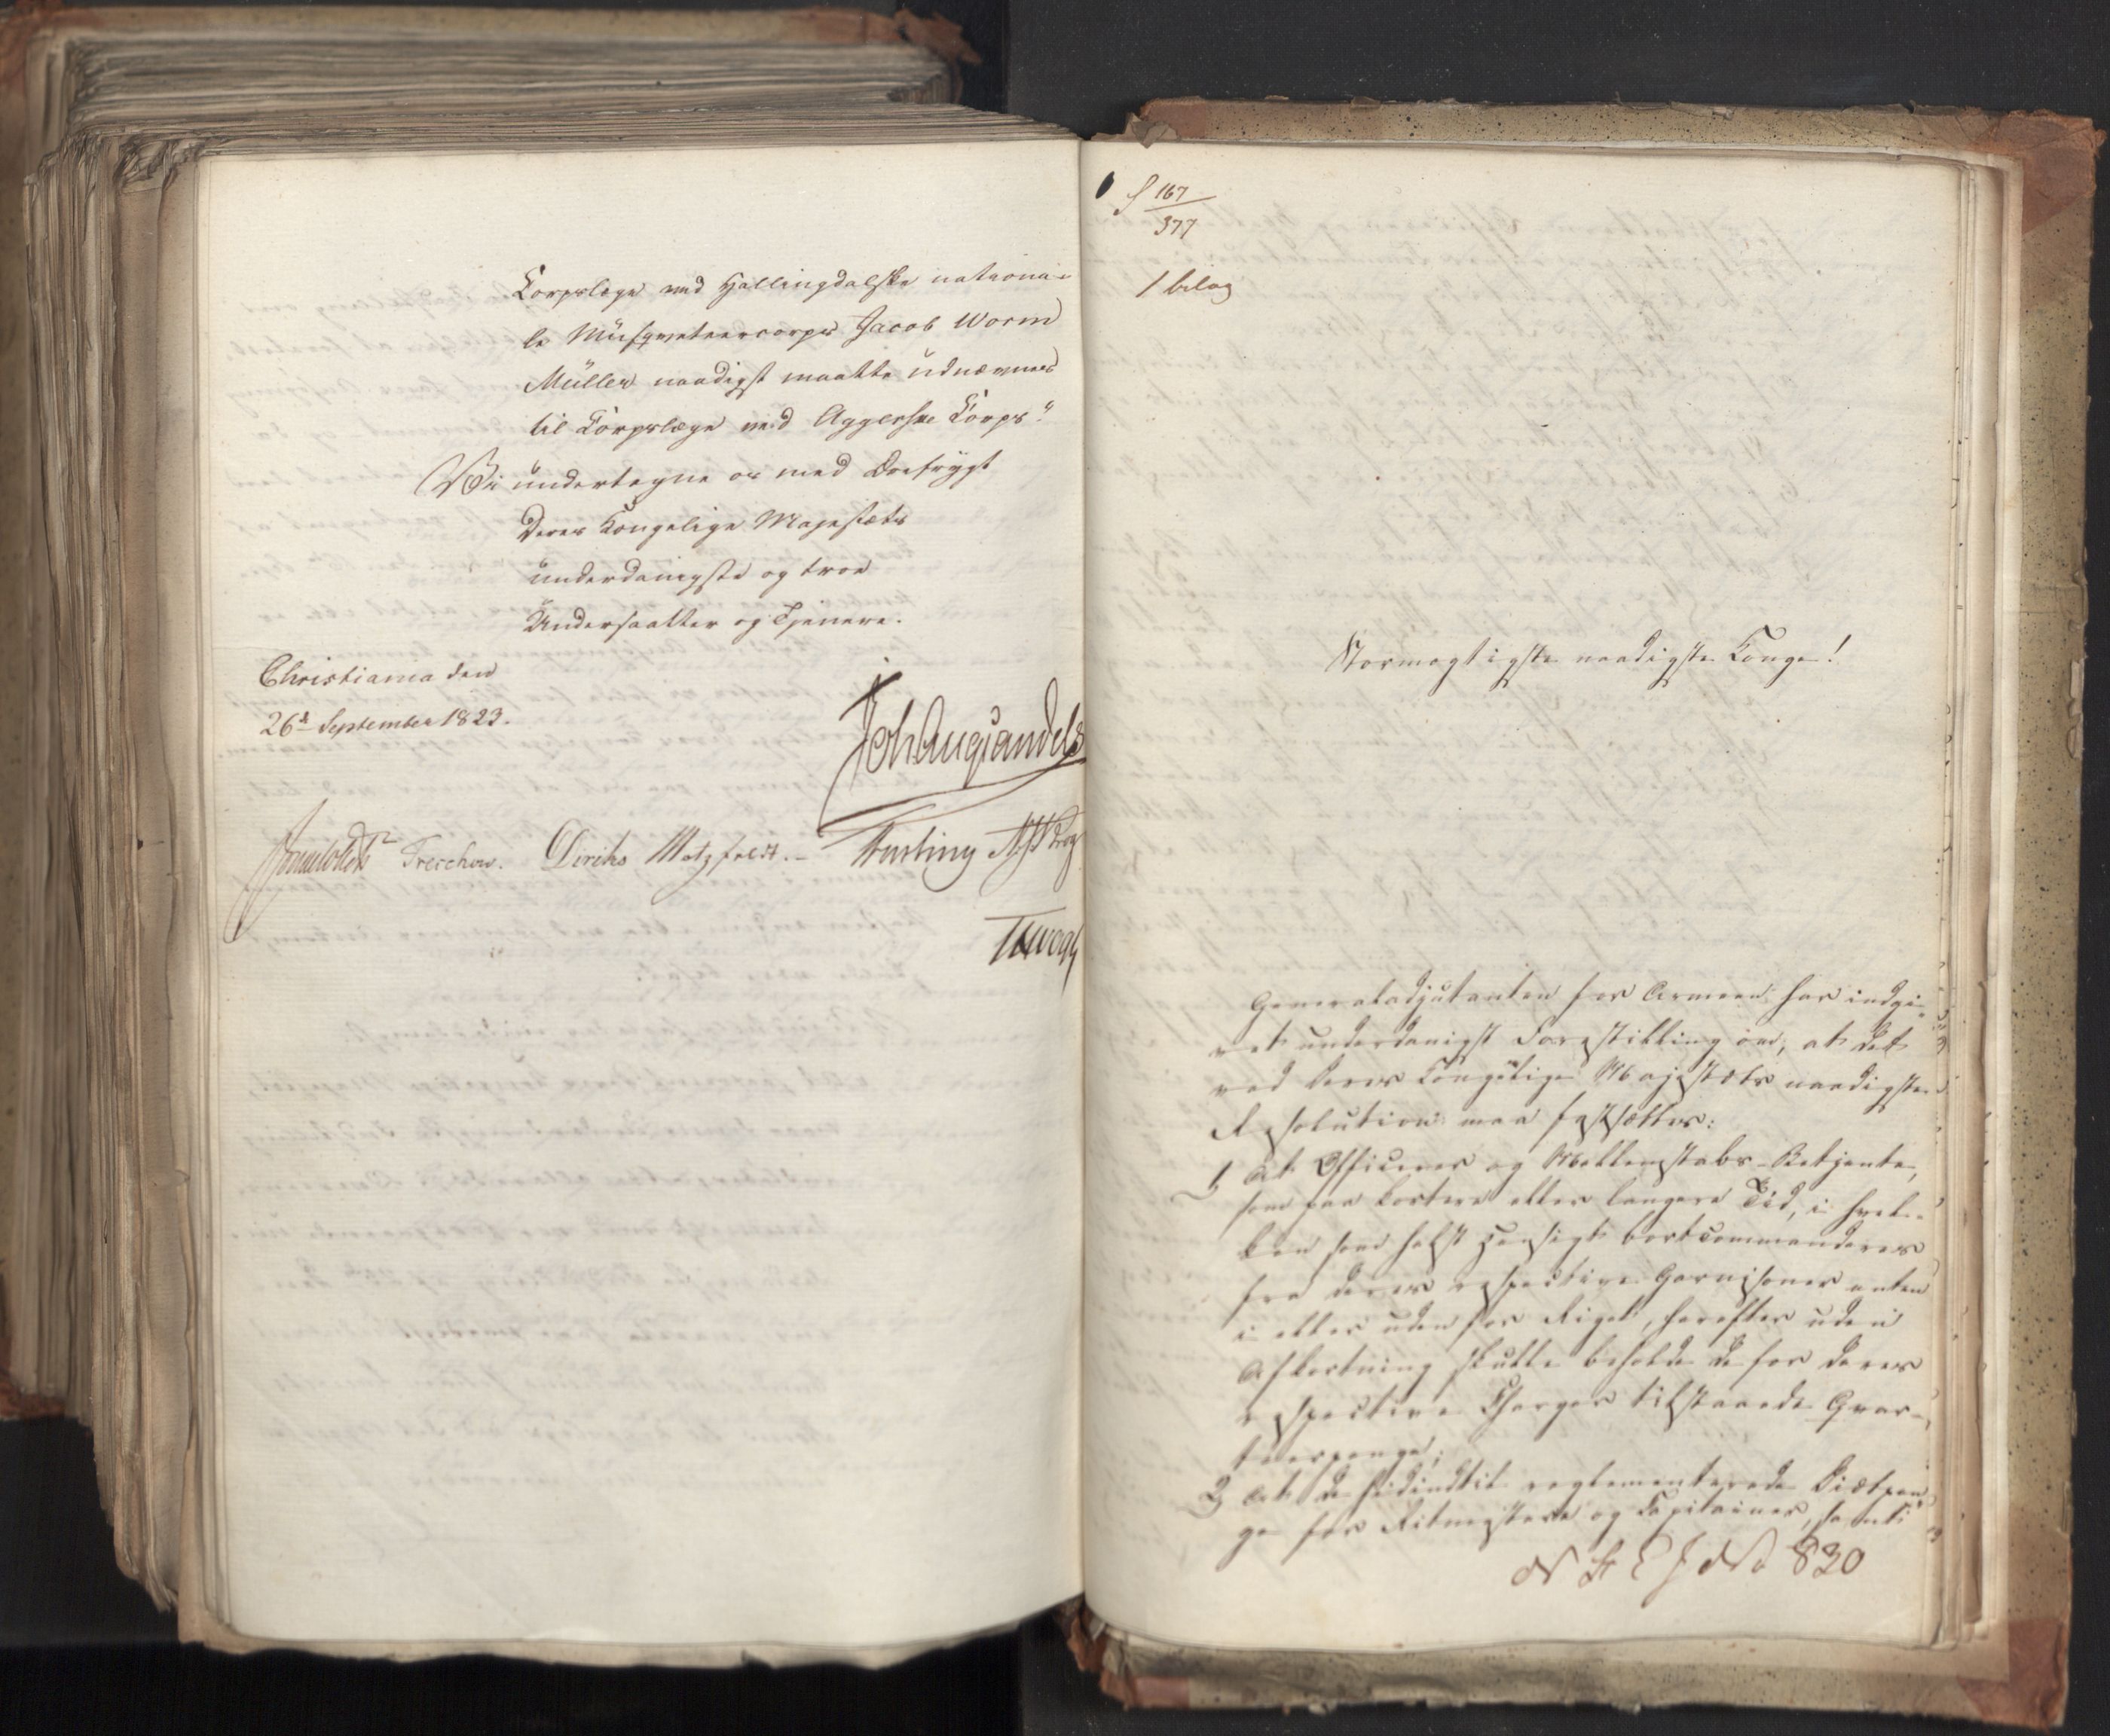 Corpslæge ved Hallingdalske nationa-
le Musqueteercorps Jacob Worm
Müller naadigst maatte udnævnes
til Corpslæge ved Aggershu Corps"
Vi undertegne os med Ærefrygt
Deres Kongelige Majestæts
underdanigste og troe
Undersaatter og Tjenere.
Christiania den
26d September 1823.
Joh Aug Sandels
Sommerhielm Treschow. Diriks Motzfeldt. Fasting
S 167
377
1 bilag
Stormægtigste naadigste Konge!
Generaladjutanten for Armeen har indgi-
vet underdanigst Forestilling om, at det
ved Deres Kongelige Majestæts naadigste
Resolution maa fastsættes:
1, At Officerer og Mellemstabs-Betjente,
som paa kortere eller længere Tid, i hvil-
ken som helst Hensigt bortcommanderes
fra deres respective Garnisoner enten
i eller uden for Riget, herefter uden
Afkortning skulle beholde de for deres
respective Charger tilstaaede Qvar-
teerpenge;
2, at de hidindtil reglementerede Diætpen-
ge for Ritmestere og Capitainer, samt
No 830